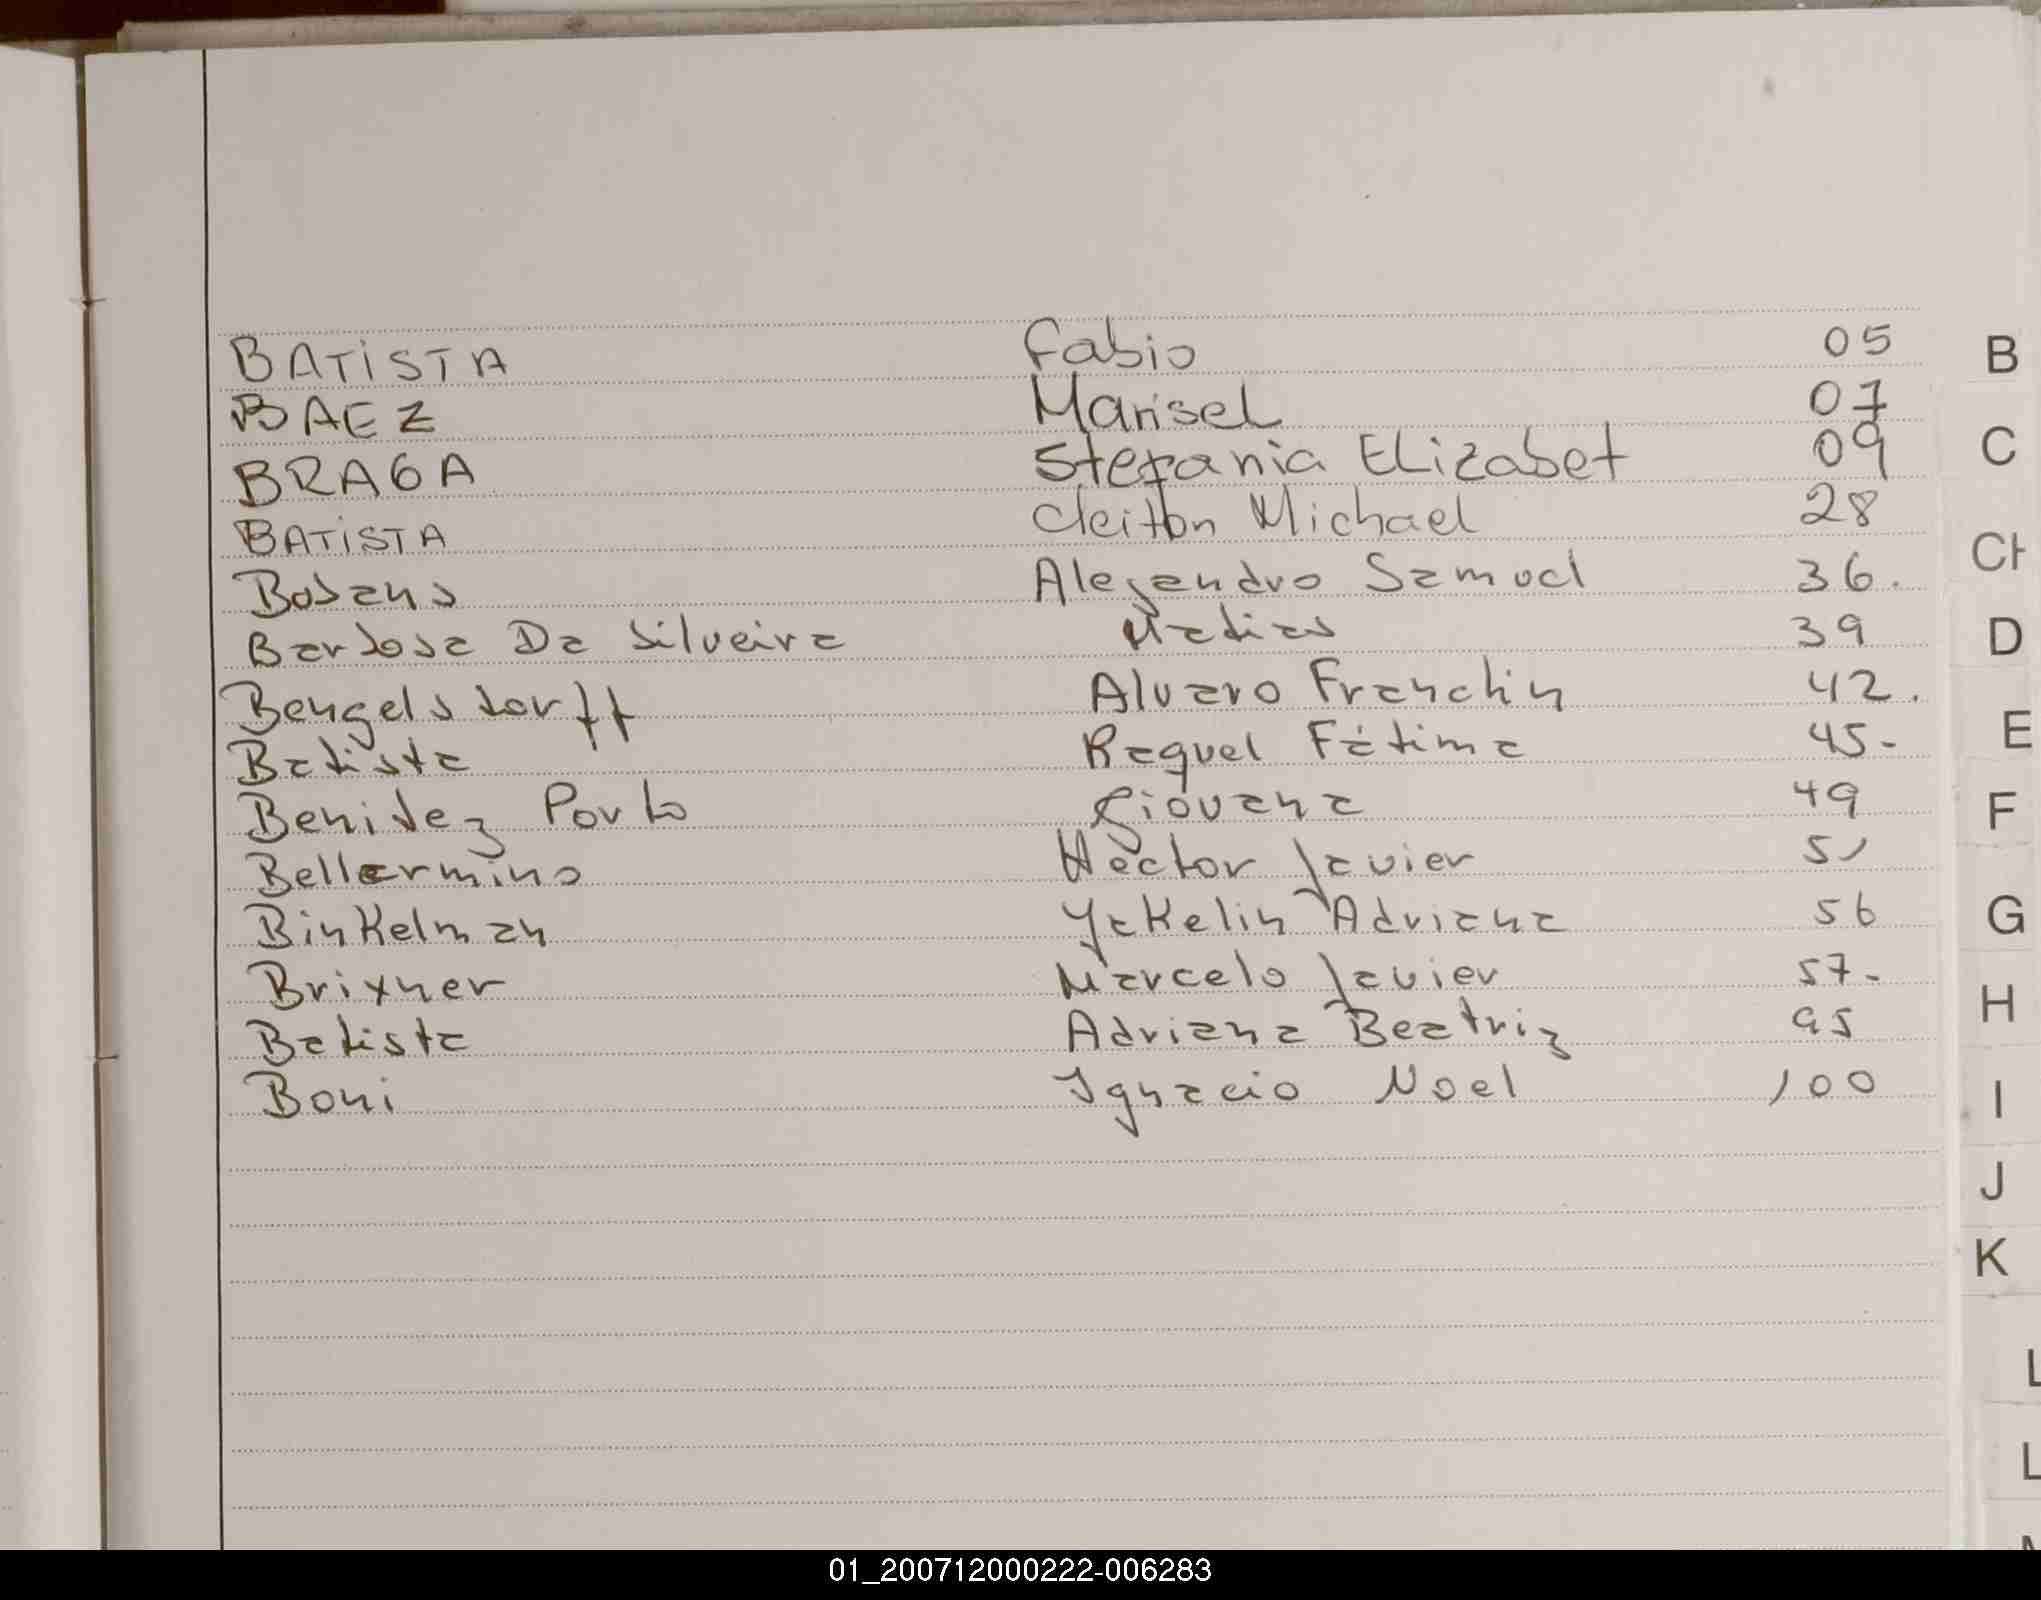 BATISTA Fabio 05
BAEZ Marisel 07
BRAGA Stefania Elizabet 09
BATISTA Cleiton Michael 28
Bobano Alejandro Samuel 36.
Barbosa Da Silveira Matias 39
Bengelstorff Alvaro Franclin 42.
Batista Raquel Fátima 45-
Benitez Porto Giovana 49
Bellarmino Hector Javier 51
Binkelman Yakelin Adriana 56
Brixner Marcelo Javier 57-
Batista Adriana Beatriz 95
Boni Ignacio Noel 100
B
C
CH
D
E
F
G
H
I
J
K
L
L
01_200712000222-006283